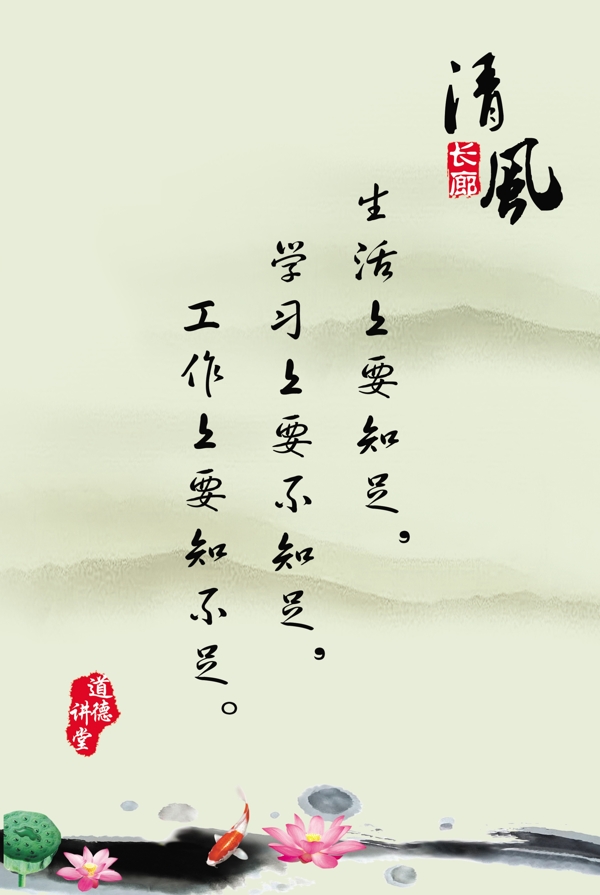 清風
长廊
生活上要知足，
学习上要不知足，
工作上要知不足。
道德
讲堂